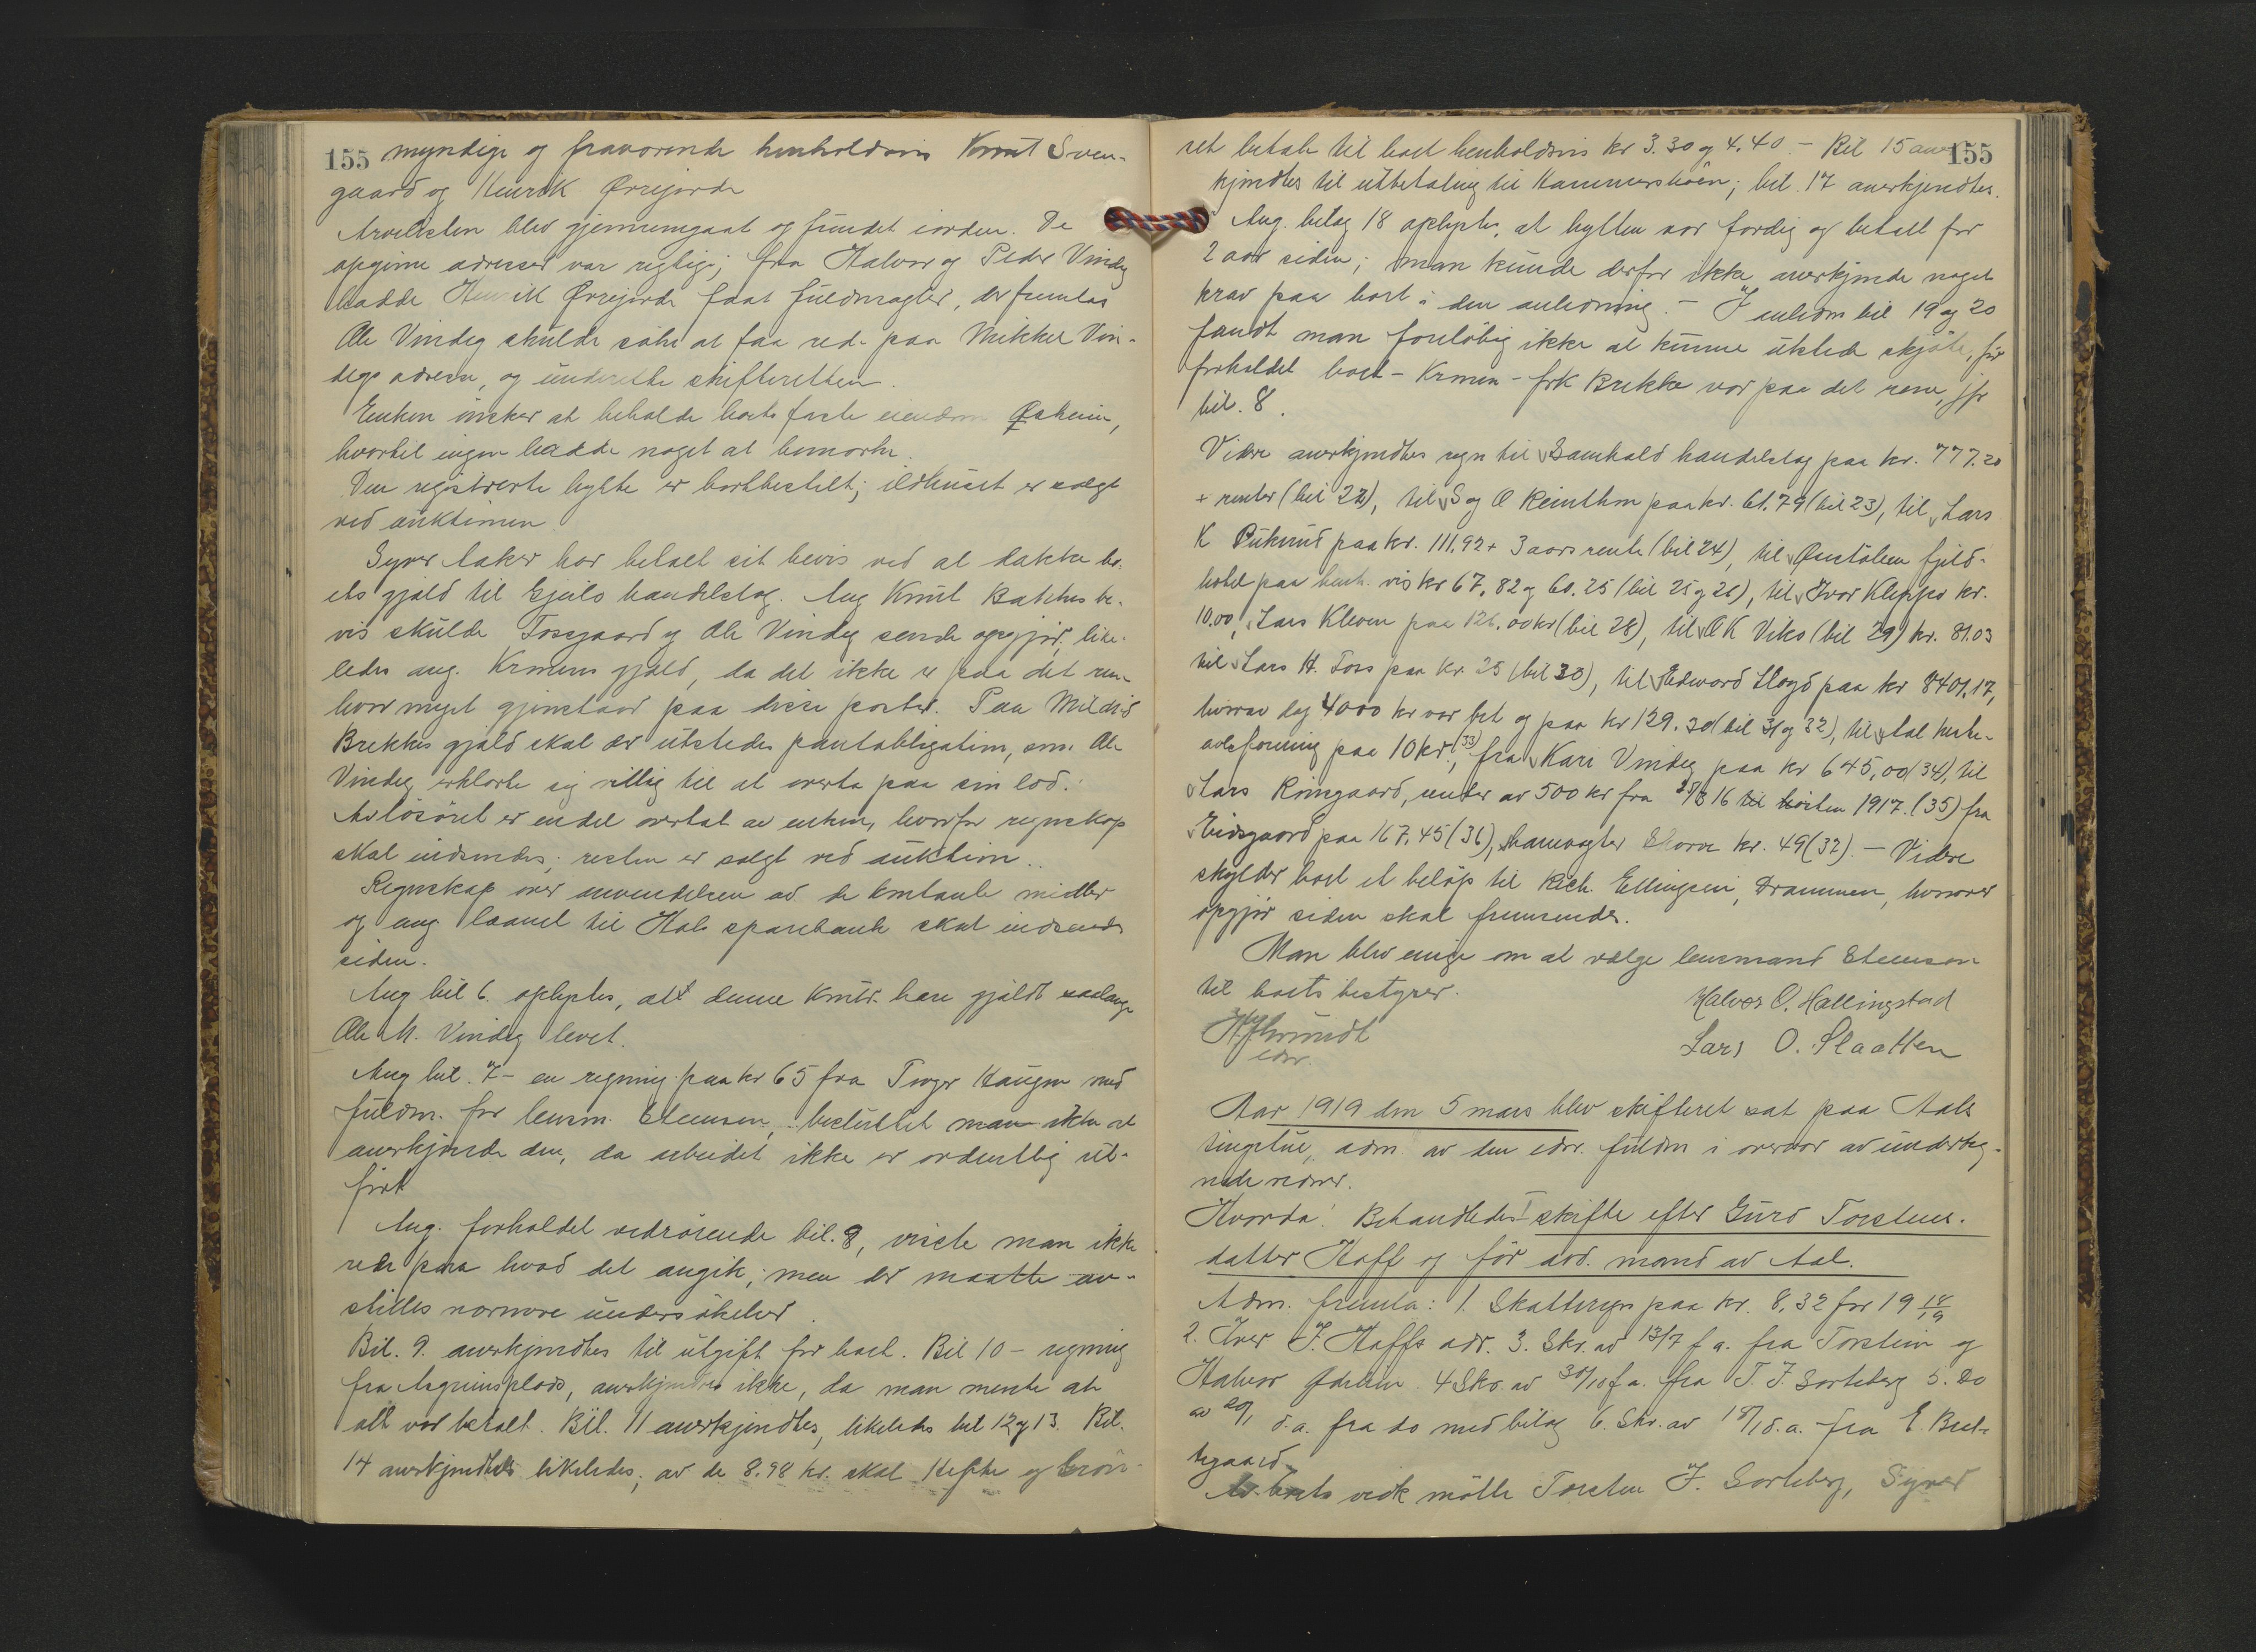 155 myndige og fraværende henholdsvis Knut Sven-
gaard og Henrik Ørrejorde
Arvelisten blev gjennemgaat og fundet iorden. De
opgivne adresser var rigtige; fra Halvor og Peder Vindeg
hadde Henrik Ørrejorde faat fuldmagter, der fremlas
Ole Vindeg skulde søke at faa rede paa Mikkel Vin-
degs adresse, og underrette skifteretten.
Enken ønsker at beholde boets faste eiendom Øsheim,
hvortil ingen hadde noget at bemerke.
Den registrerte hytte er bortbestilt; ildhuset er solgt
ved auktionen
Syver Aaker har betalt sit bevis ved at dække bo-
ets gjæld til Gjeilo handelslag. Ang Knut Bakkes be-
vis skulde Tossgaard og Ole Vindeg sende opgjør, like-
ledes ang. Krmens gjæld, da det ikke er paa det rene
hvor meget gjenstaar paa disse poster. Paa Mildrid
Brekkes gjæld skal der utstedes pantobligation, som Ole
Vindeg erklærte sig villig til at overta paa sin lod.
Av løsøret er endel overtat av enken, hvorfor regnskap
skal indsendes; resten er solgt ved auktion.
Regnskap over anvendelsen av de kontante midler
og ang laanet til Hols sparebank skal indsendes
siden.
Ang bil 6. oplystes, at denne kontr. bare gjaldt saalænge
Ole M. Vindeg levet.
Ang bil. 7 - en regning paa kr 65 fra Torger Haugen ved
fuldm. for lensm. Stensen, besluttet man ikke at
anerkjende den, da arbeidet ikke er ordentlig ut-
ført
Ang. forholdet vedrørende bil. 8, visste man ikke
rede paa hvad det angik; men der maatte an-
stilles nærmere undersøkelser.
Bil. 9. anerkjendtes til utgift for boet. Bil 10 - regning
fra Asgrimsplads, anerkjendtes ikke, da man mente at
alt var betalt. Bil. 11 anerkjendtes, likeledes bil 12 og 13. Bil.
14 anerkjendtes likeledes; av de 8.98 kr. skal Hefte og Grøn-
155
ret betale til boet henholdsvis kr 3.30 og 4.40 - Bil 15 aner-
kjendtes til utbetaling til Hammersbøen; bil. 17 anerkjendtes.
Ang. bilag 18 oplystes, at hytten var færdig og betalt for
2 aar siden; man kunde derfor ikke anerkjende noget
krav paa boet i den anledning. - I anledn bil 19 og 20
fandt man foreløbig ikke at kunne utstede skjøte, før
forholdet boet - Krmen - frk Brekke var paa det rene, jfr
bil. 8.
Videre anerkjendtes regn til Samhald handelslag paa kr. 777.20
+ renter (bil 22), til S og O Reinthon paa kr. 61.79 (bil 23), til Lars
K Pukerud paa kr. 111.92 + 3 aars rente (bil 24), til Ustalen fjeld-
hotel paa henh. vis kr 67,82 og 60.25 (bil 25 og 26), til Ivar Kleppo kr.
10.00, Lars Kleven paa 126.00 kr (bil 28), til O K Viko (bil 29) kr. 81.03
til Lars H. Foss paa kr. 25 (bil 30), til Edward Lloyd paa kr 8401.17,
hvorav dog 4000 kr var bet og paa kr 129.30 (bil 31 og 32), til Aal heste-
avlsforening paa 10 kr. (33), fra Kari Vindeg paa kr 645,00 (34), til
Lars Ringaard, renter av 500 kr fra 25/3 16 til høsten 1917. (35) fra
Eidsgaard paa 167.45 (36), skamvogter Skorve kr. 49 (37). - Videre
skylder boet et beløp til Rich. Ellingsen, Drammen, hvorover
opgjør siden skal fremsendes.
Man blev enige om at vælge lensmand Stenson
til boets bestyrer.
Halvor O. Hallingstad
Lars O. Slaatten
edsv.
Aar 1919 den 5 mars blev skifteret sat paa Aals
tingstue, adm. av den edsv. fuldm i overvær av underteg-
nede vidner.
Hvorda! Behandledes: skifte efter Guro Torstens-
datter Hoff og før avd. mand av Aal.
Adm. fremla: 1. Skattregn paa kr. 8,32 for 19 18/19
2. Iver T. Hoffs adr. 3. Skr. av 13/7 f a. fra Torstein og
Halvor Ødelien. 4 Skr. av 30/10 f a. fra T. I. Sorteberg 5. Do
av 20/1 d.a. fra do med bilag 6. Skr. av 18/1 d.a. fra E. Brat-
tegaard.
Av boets vedk møtte Torsten I. Sorteberg, Syver